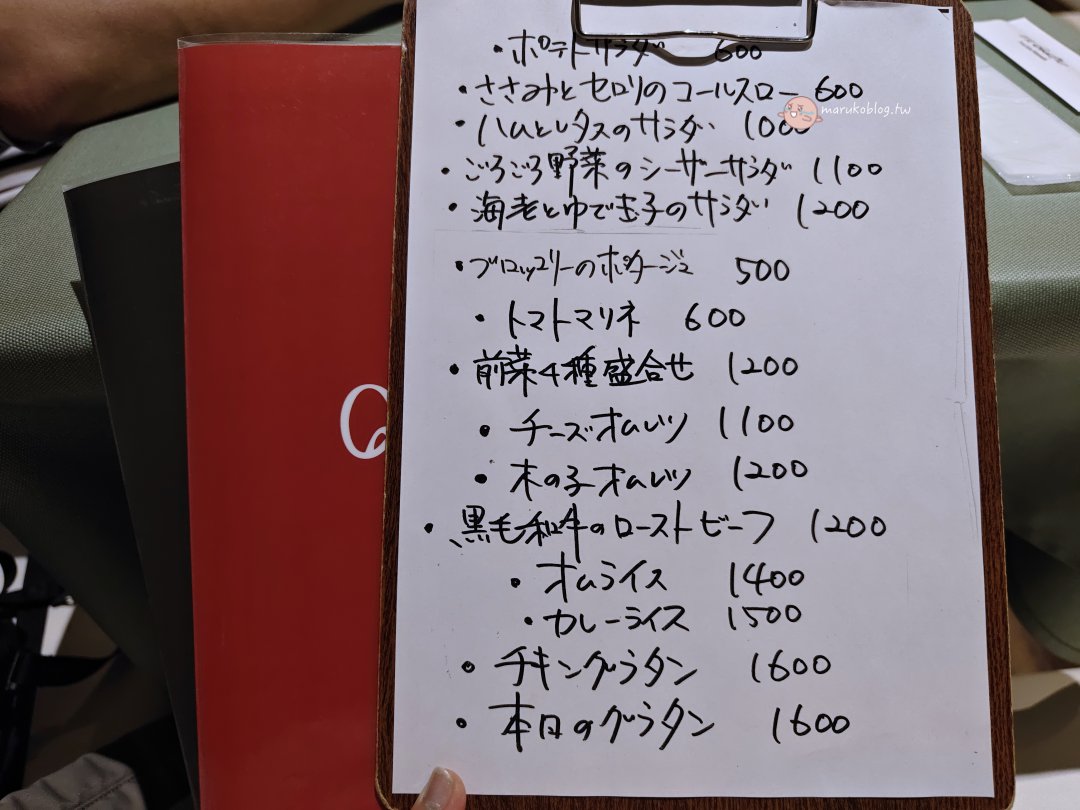 ・ポテトサラダ 600
・ささみとセロリのコールスロー 600
marukoblog.tw
・ハムとレタスのサラダ 1000
・ごろごろ野菜のシーザーサラダ 1100
・海老とゆで玉子のサラダ 1200
・ブロッコリーのポタージュ 500
・トマトマリネ 600
・前菜4種盛合せ 1200
・チーズオムレツ 1100
・木の子オムレツ 1200
・黒毛和牛のローストビーフ 1200
・オムライス 1400
・カレーライス 1500
・チキングラタン 1600
・本日のグラタン 1600